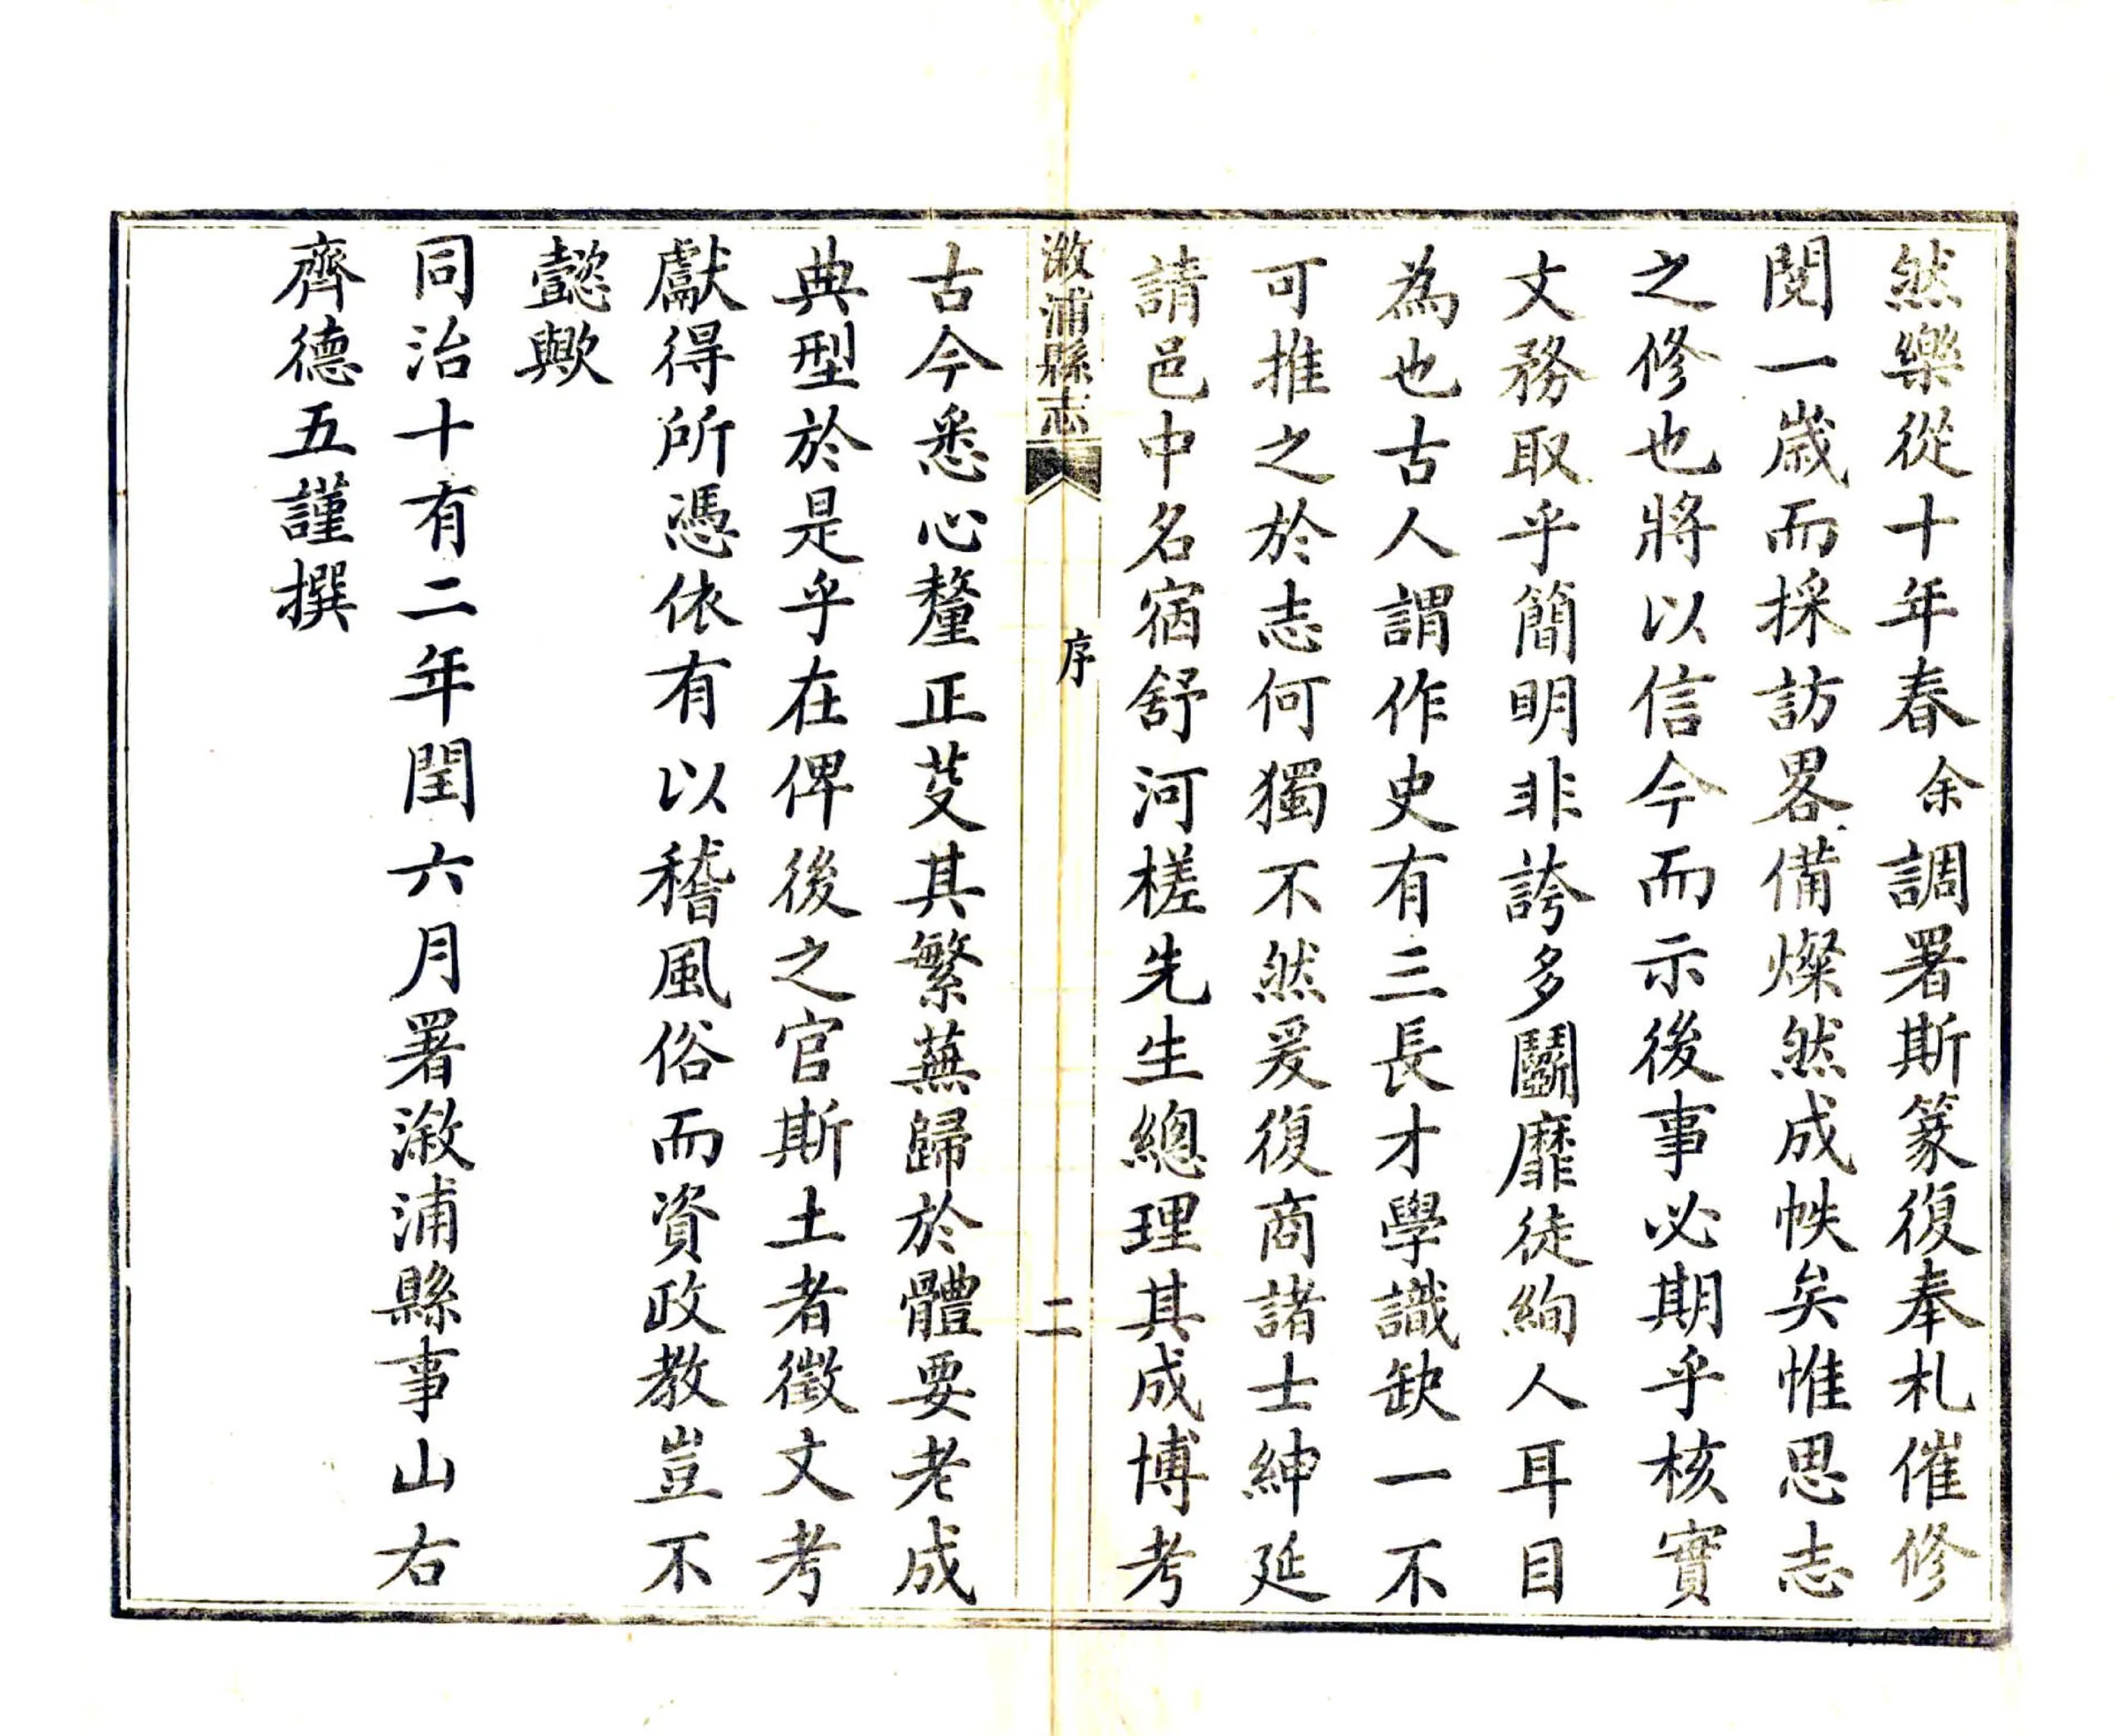 然樂從十年春余調署斯篆復奉札催修
閱一歲而採訪畧備燦然成帙矣惟思志
之修也將以信今而示後事必期乎核實
文務取乎簡明非誇多鬭靡徒絢人耳目
為也古人謂作史有三長才學識缺一不
可推之於志何獨不然爰復商諸士紳延
請邑中名宿舒河槎先生總理其成博考
漵浦縣志 序 二
古今悉心釐正芟其繁蕪歸於體要老成
典型於是乎在俾後之官斯土者徵文考
獻得所憑依有以稽風俗而資政教豈不
懿歟
同治十有二年閏六月署漵浦縣事山右
齊德五謹撰